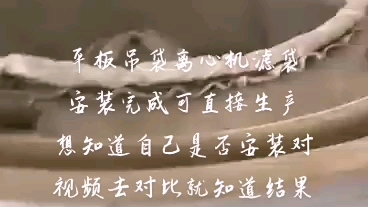 平板吊袋离心机滤袋
安装完成可直接生产
想知道自己是否安装对
视频去对比就知道结果